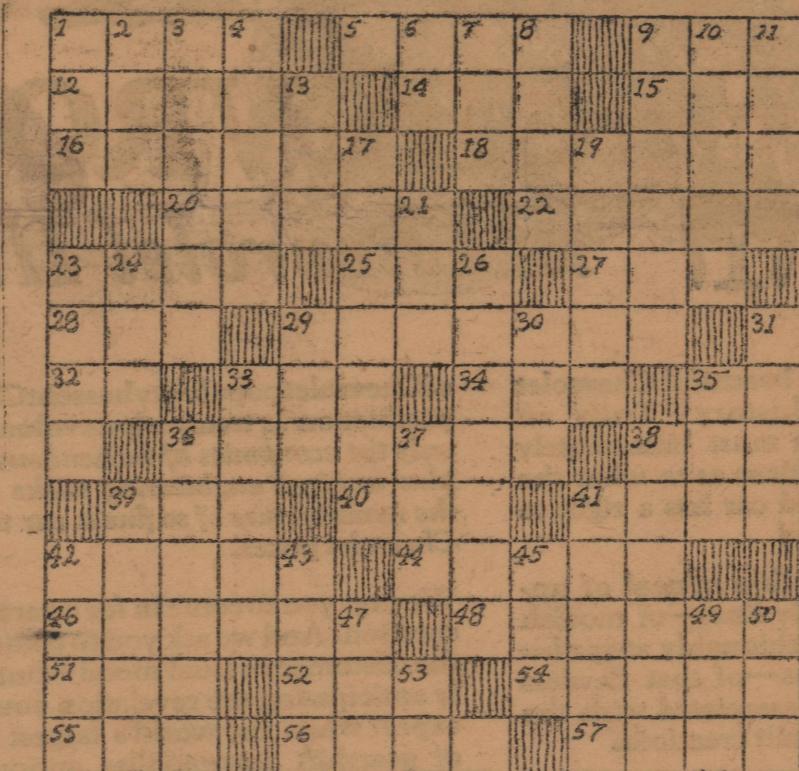 1 2 3 4 5 6 7 8 9 10 11
12 13 14 15
16 17 18 19
20 21 22
23 24 25 26 27
28 29 30 31
32 33 34 35
36 37 38
39 40 41
42 43 44 45
46 47 48 49 50
51 52 53 54
55 56 57